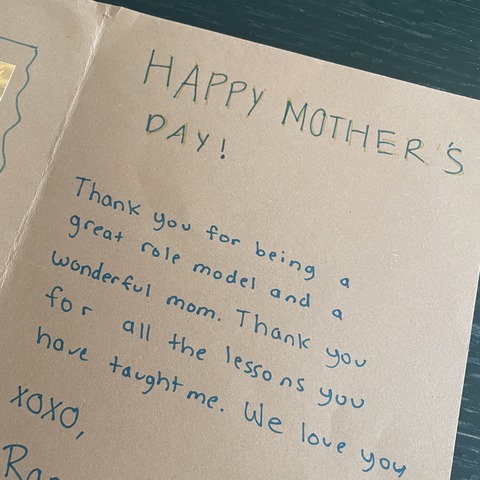 HAPPY MOTHER'S
DAY!
Thank you for being a
great role model and a
wonderful mom. Thank you
for all the lessons you
have taught me. We love you
XOXO,